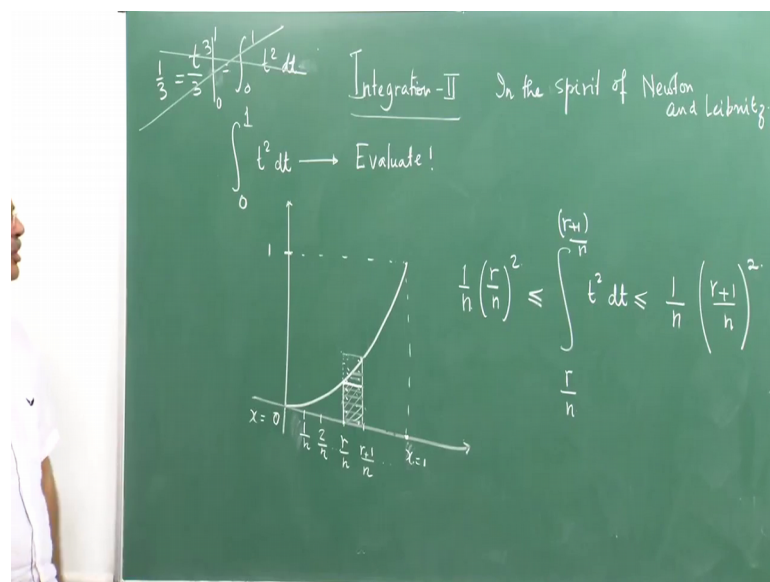 1/3 = t³/3 |₀¹ = ∫₀¹ t² dt
Integration-II In the spirit of Newton
and Leibnitz.
∫₀¹ t² dt → Evaluate!
1
1/n (r/n)² ≤ ∫_{r/n}^{(r+1)/n} t² dt ≤ 1/n ((r+1)/n)².
x=0 1/n 2/n r/n r+1/n .. x=1